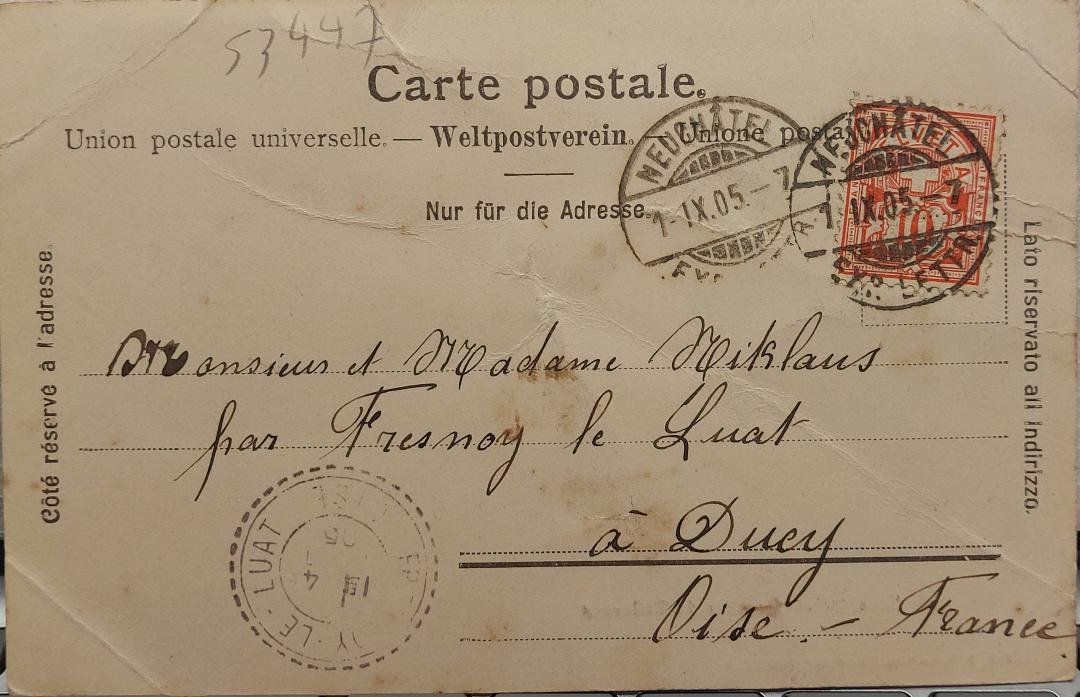 53447
Carte postale.
Union postale universelle. — Weltpostverein. Unione postale
Nur für die Adresse.
NEUCHÂTEL
1-IX.05.-7
NEUCHÂTEL
1-IX.05.-7
EXP. LETTR.
10
Côté réservé à l'adresse.
Lato riservato all indirizzo.
Monsieur et Madame Niklaus
par Fresnoy le Luat
à Ducy
Oise. - France
OY-LE-LUAT
OISE
05
4